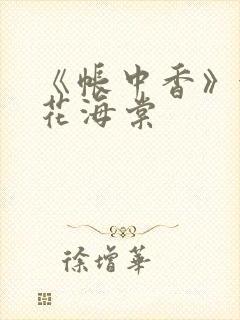 《帐中香》
花海棠
徐增华